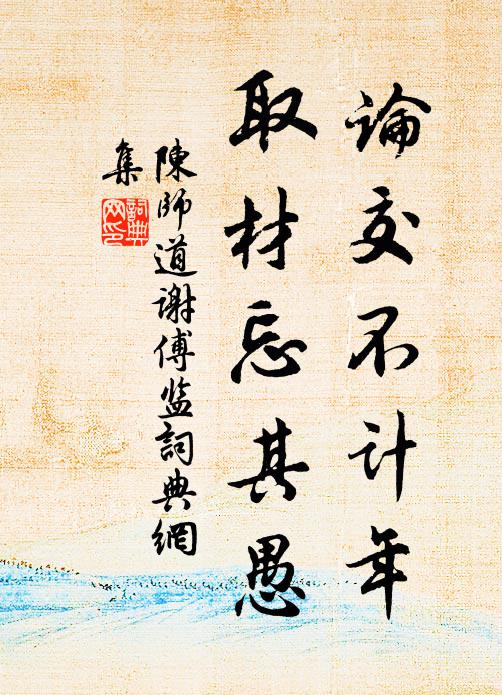 論交不計年
取材忘其愚
陳師道謝傅监詞典網
集
詞典
网印